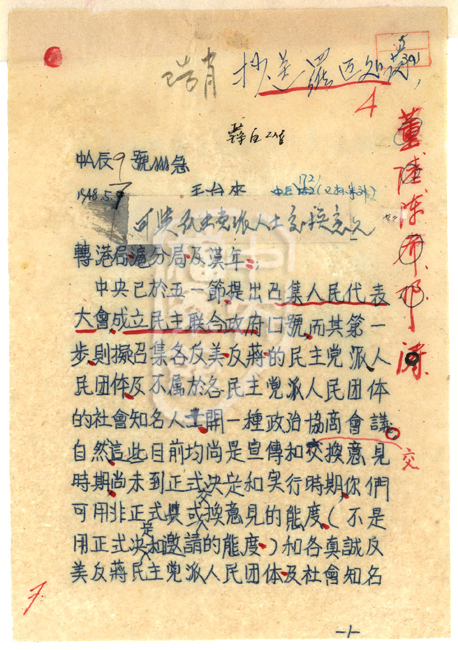 抄送羅迈
4
中A長9號AAA急
1948.5.7
可與各民主党派人士交換意見
轉港局,滬分局及漢年:
中央已於五一節提出召集人民代表
大會,成立民主聯合政府口號,而其第一
步,則擬召集各反美反蔣的民主党派人
民團体及不属於各民主党派人民團体
的社會知名人士開一種政治協商會議。
自然這些目前均尚是宣傳和交換意見
交
時期,尚未到正式決定和实行時期,你們
可用非正式與或交換意見的態度(不是
用正式決和邀請的態度)和各真誠反
美反蔣民主党派人民團体及社會知名
-1-
董
陳
鄧